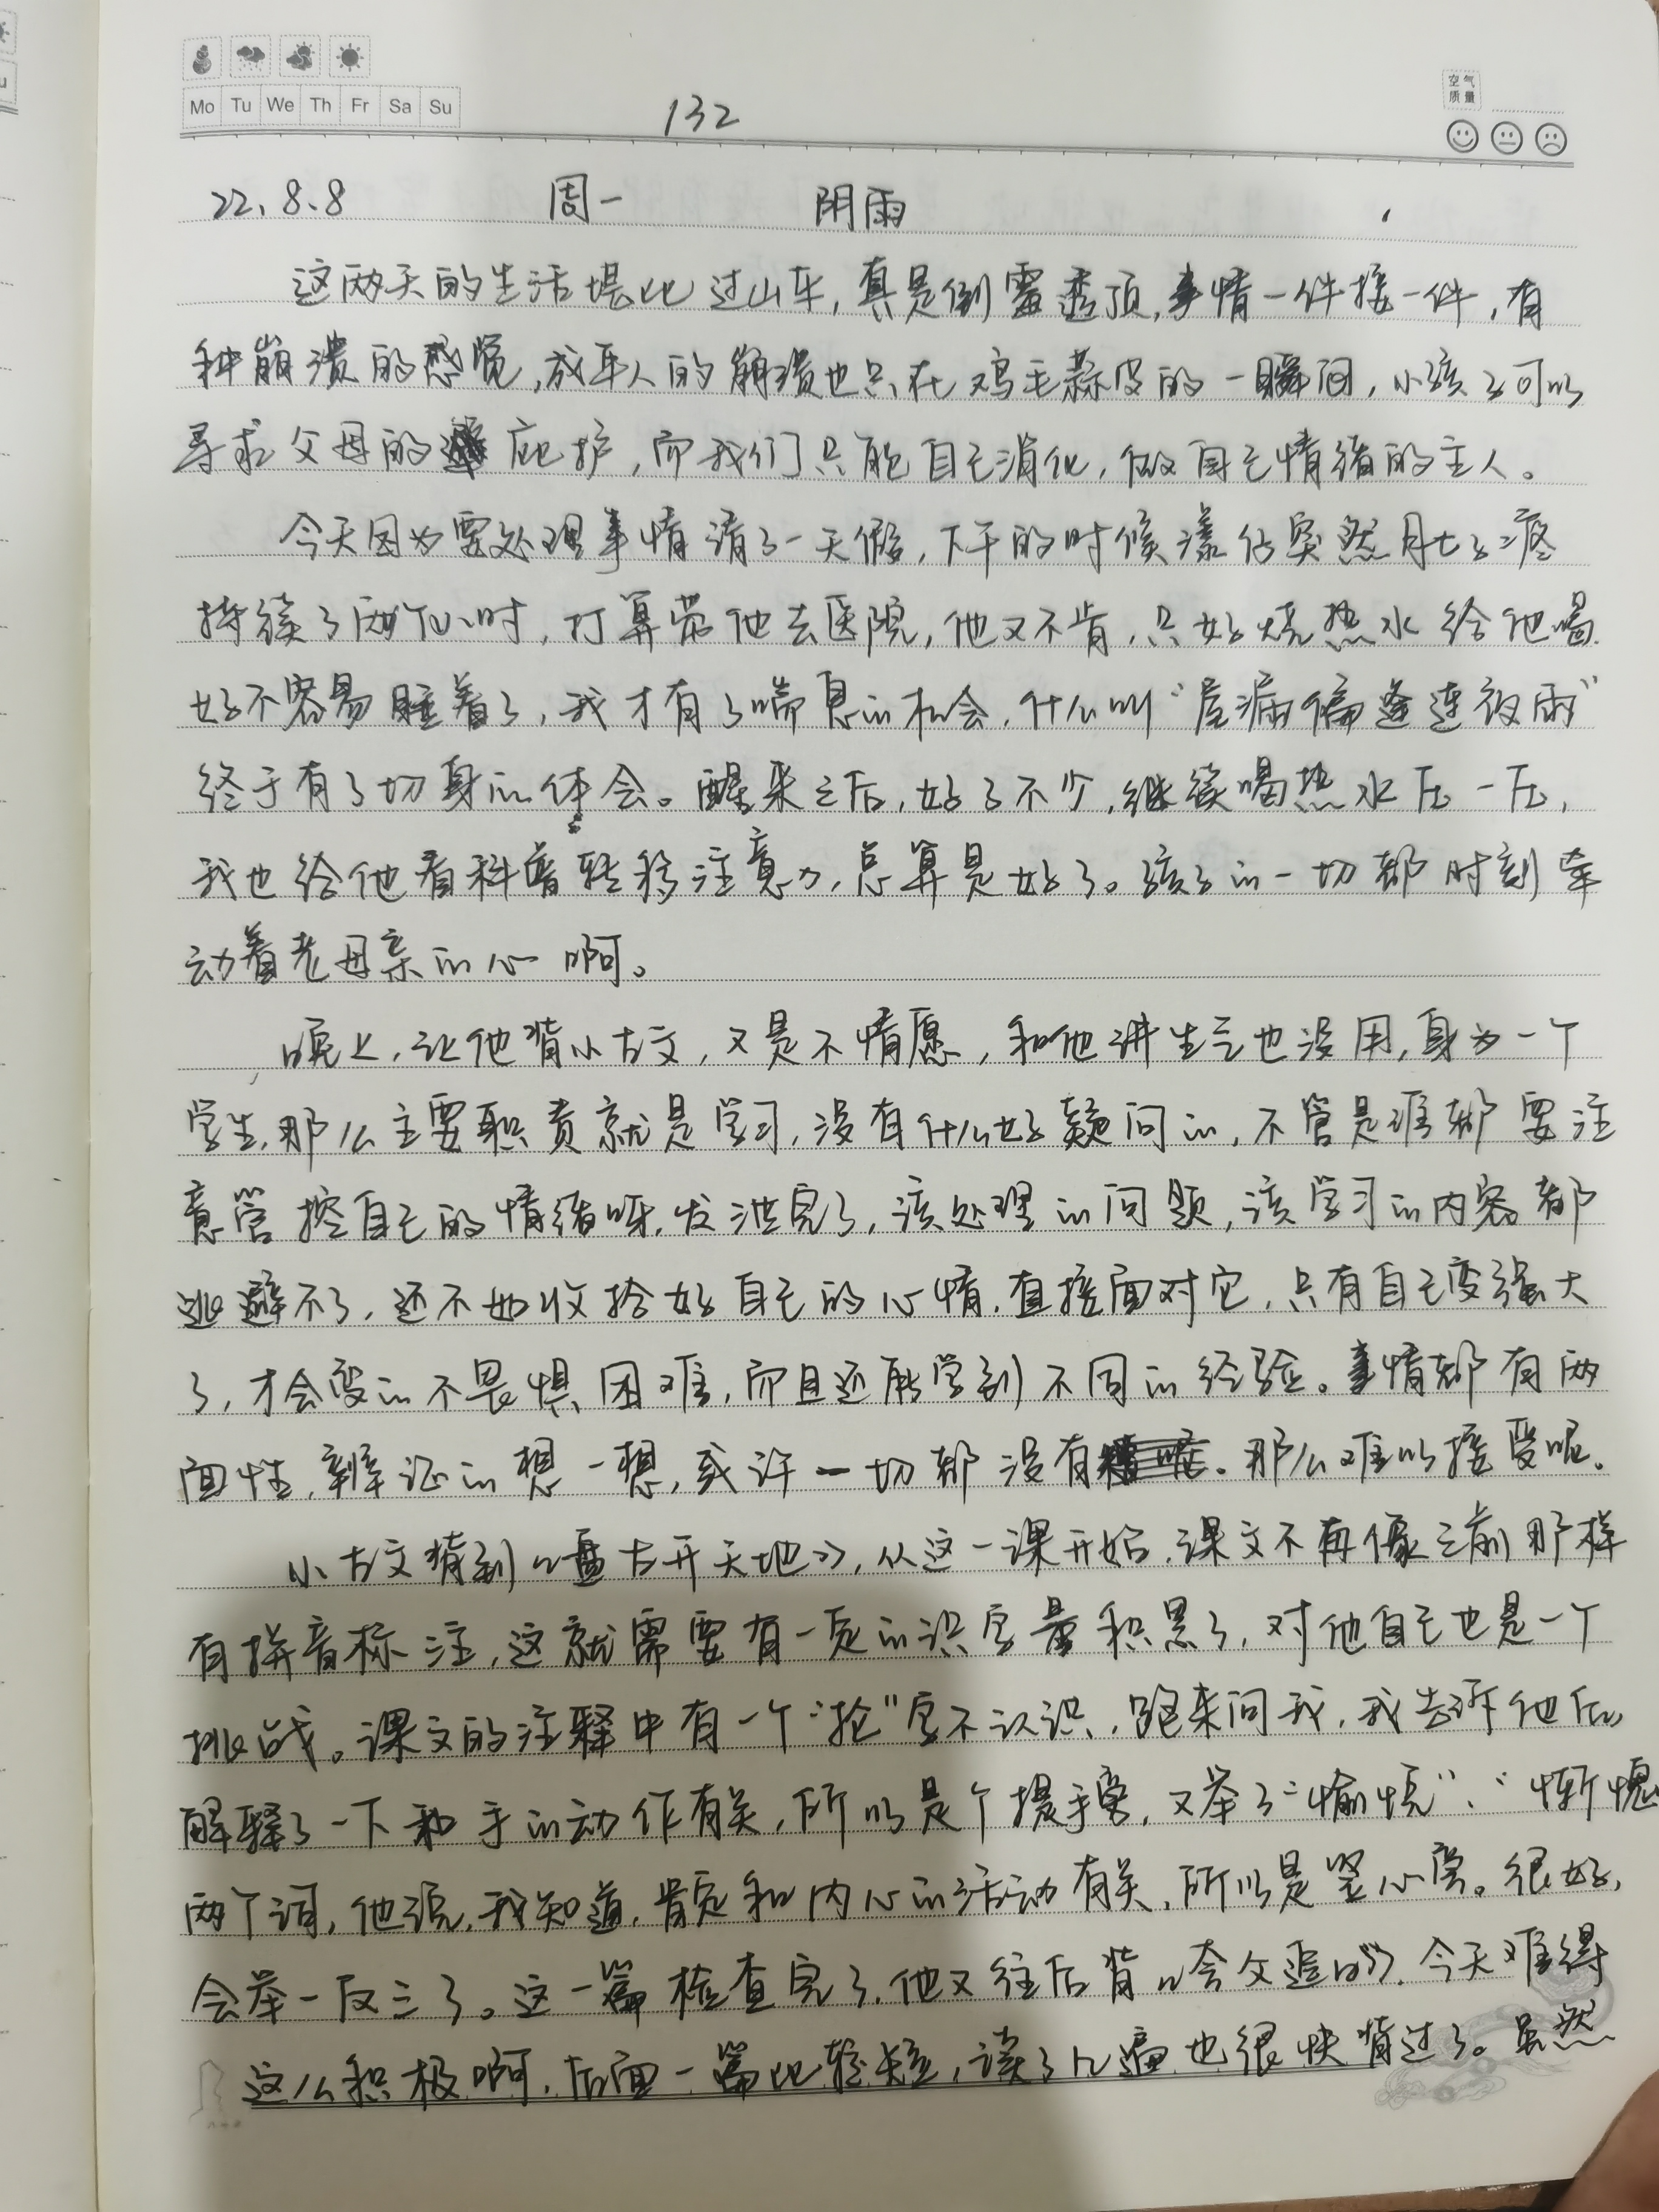 Mo Tu We Th Fr Sa Su
132
空气
质量
22.8.8 周一 阴雨
这两天的生活堪比过山车,真是倒霉透顶,事情一件接一件,有
种崩溃的感觉,成年人的崩溃也只在鸡毛蒜皮的一瞬间,小孩子可以
寻求父母的庇护,而我们只能自己消化,做自己情绪的主人。
今天因为要处理事情请了一天假,下午的时候漾仔突然肚子疼
持续了两个小时,打算带他去医院,他又不肯,只好烧热水给他喝.
好不容易睡着了,我才有了喘息的机会,什么叫“屋漏偏逢连夜雨”
终于有了切身的体会。醒来之后,好了不少,继续喝热水压一压,
我也给他看科普转移注意力,总算是好了。孩子的一切都时刻牵
动着老母亲的心啊。
晚上,让他背小古文,又是不情愿,和他讲生气也没用,身为一个
学生,那么主要职责就是学习,没有什么好疑问的,不管是谁都要注
意管控自己的情绪呀,发泄完了,该处理的问题,该学习的内容都
逃避不了,还不如收拾好自己的心情,直接面对它,只有自己变强大
了,才会变的不畏惧困难,而且还能学到不同的经验。事情都有两
面性,辩证的想一想,或许一切都没有那么难以接受呢.
小古文背到《盘古开天地》,从这一课开始,课文不再像之前那样
有拼音标注,这就需要有一定的识字量积累了,对他自己也是一个
挑战。课文的注释中有一个“抡”字不认识,跑来问我,我告诉他后,
解释了一下和手的动作有关,所以是个提手旁,又举了“愉悦”、“惭愧
两个词,他说,我知道,肯定和内心的活动有关,所以是竖心旁。很好,
会举一反三了。这一篇检查完了,他又往后背《夸父追日》.今天难得
这么积极啊,后面一篇比较短,读了几遍也很快背过了。虽然